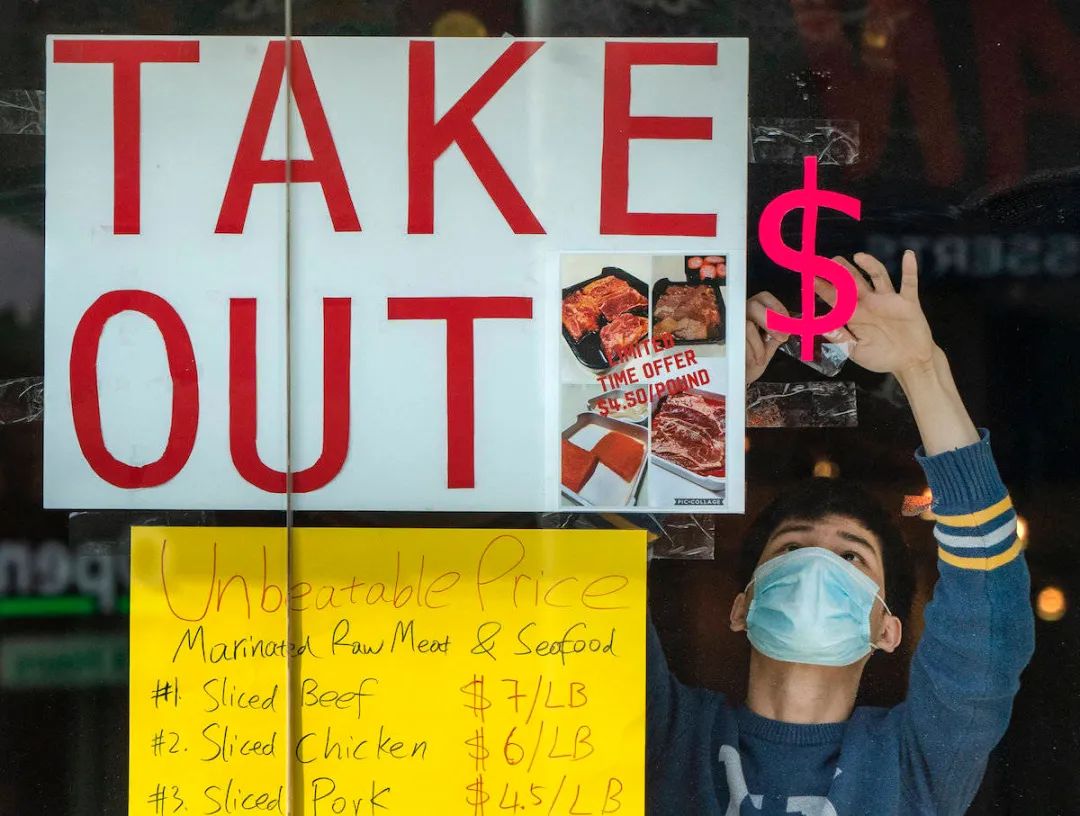 TAKE
OUT
$
LIMITED
TIME OFFER
$4.50/POUND
PIC•COLLAGE
Unbeatable Price
Marinated Raw Meat & Seafood
#1. Sliced Beef $7/LB
#2. Sliced Chicken $6/LB
#3. Sliced Pork $4.5/LB